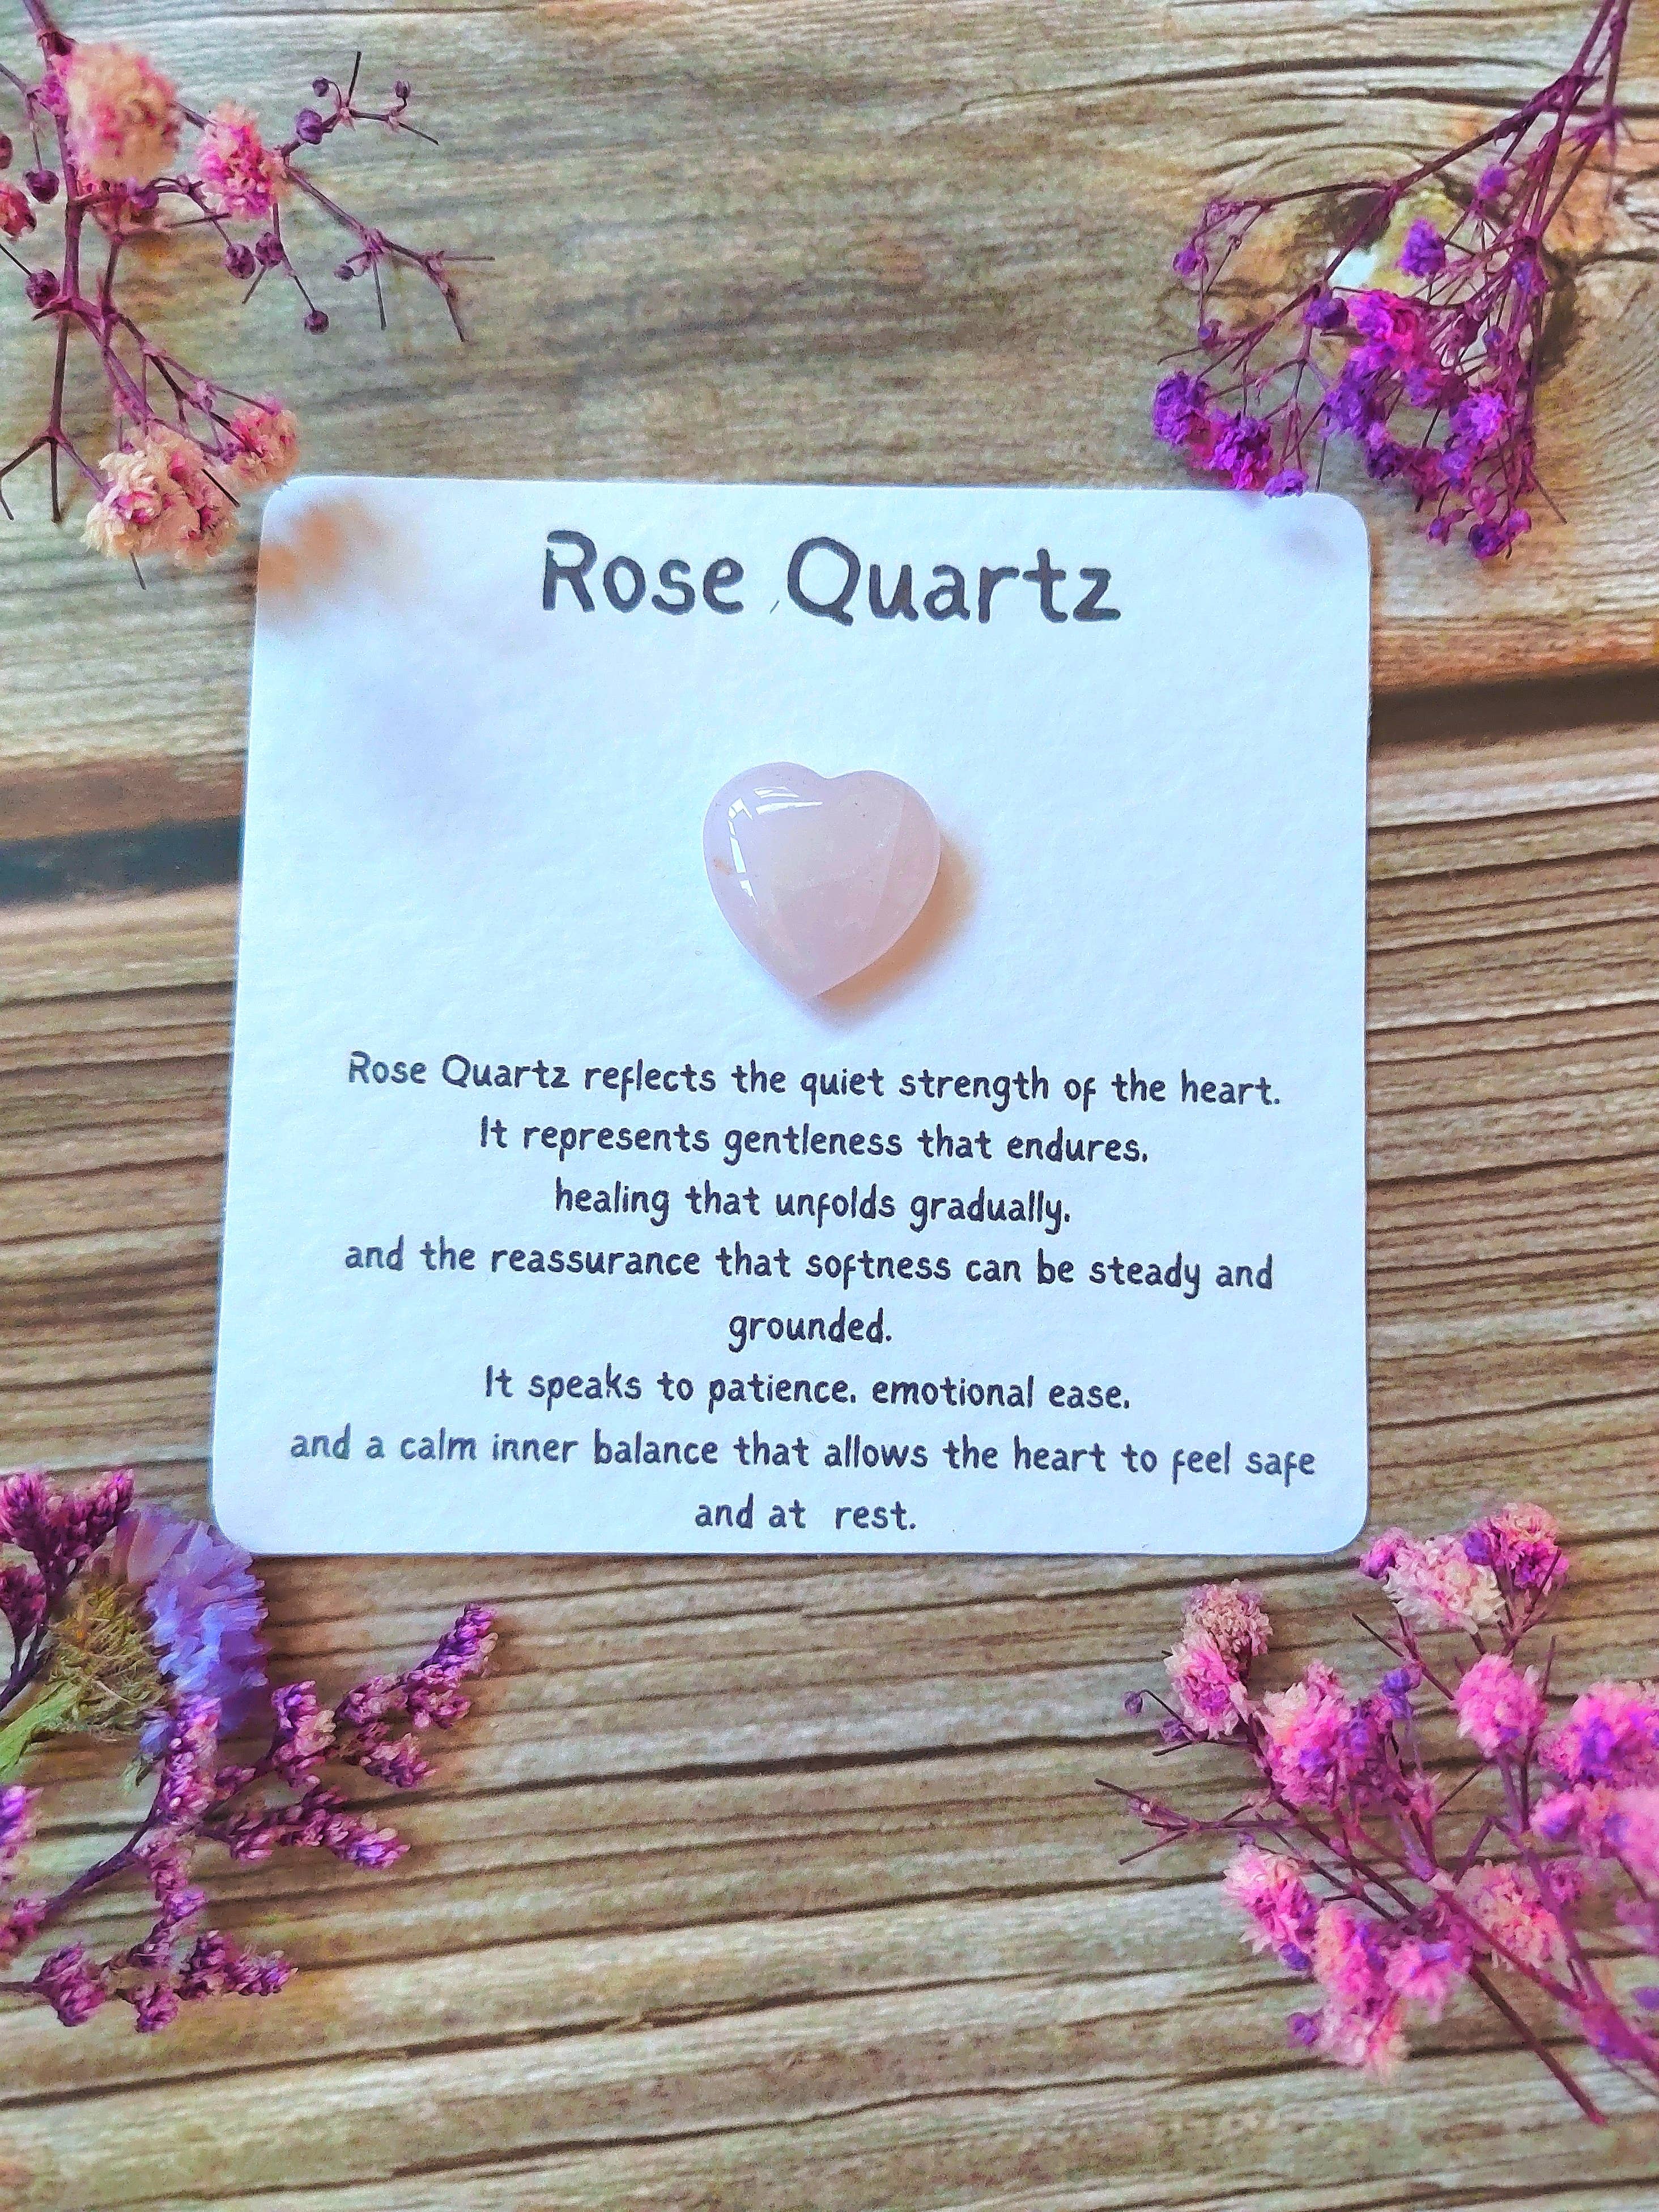 Rose Quartz
Rose Quartz reflects the quiet strength of the heart.
It represents gentleness that endures,
healing that unfolds gradually,
and the reassurance that softness can be steady and
grounded.
It speaks to patience, emotional ease,
and a calm inner balance that allows the heart to feel safe
and at rest.